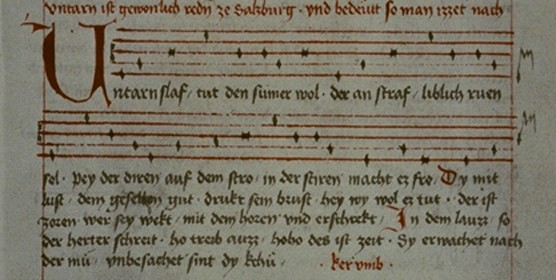 Untarn ist gewonlich redn ze Salzburg · vnd bedeutt so man izzet nach
Untarnslaf / tut den sumer wol · der an straf / liblich ruen
sol · pey der diren auf dem stro / in der schiren macht ez fro / Dy mit
lust · dem gesellen gut · drukt sein brust · hey wy wol ez tut · der ist
zoren wer sey wekt / mit dem horen vnd erschrekt / In dem lauzz / so
der herter schreit · ho treib auzz / hoho des ist zeit · Sy erwachet nach
der mü / vnbesachet sint dy kchü · ker vmb ·